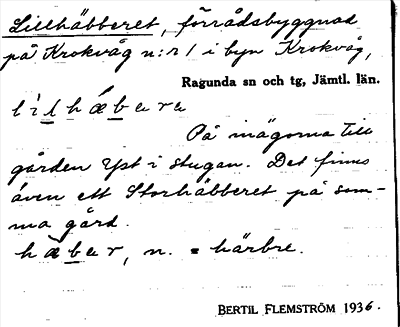 Lillhäbberet, förrådsbyggnad
på Krokvåg n:r 1 i byn Krokvåg,
Ragunda sn och tg, Jämtl. län.
På mägorna till
gården Yst i stugan. Det finns
även ett Storhäbberet på sam-
ma gård.
hæbar, n. = härbre.
BERTIL FLEMSTRÖM 1936.